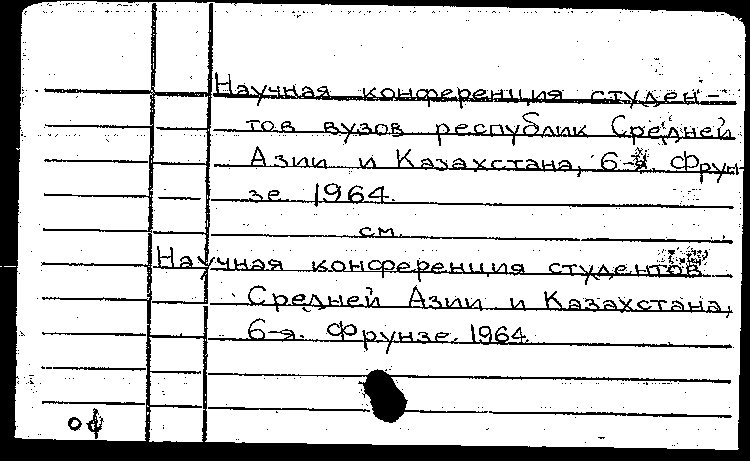 Научная конференция студен-
тов вузов республик Средней
Азии и Казахстана, 6-я. Фрун-
зе. 1964.
см.
Научная конференция студентов
Средней Азии и Казахстана,
6-я. Фрунзе. 1964.
оф